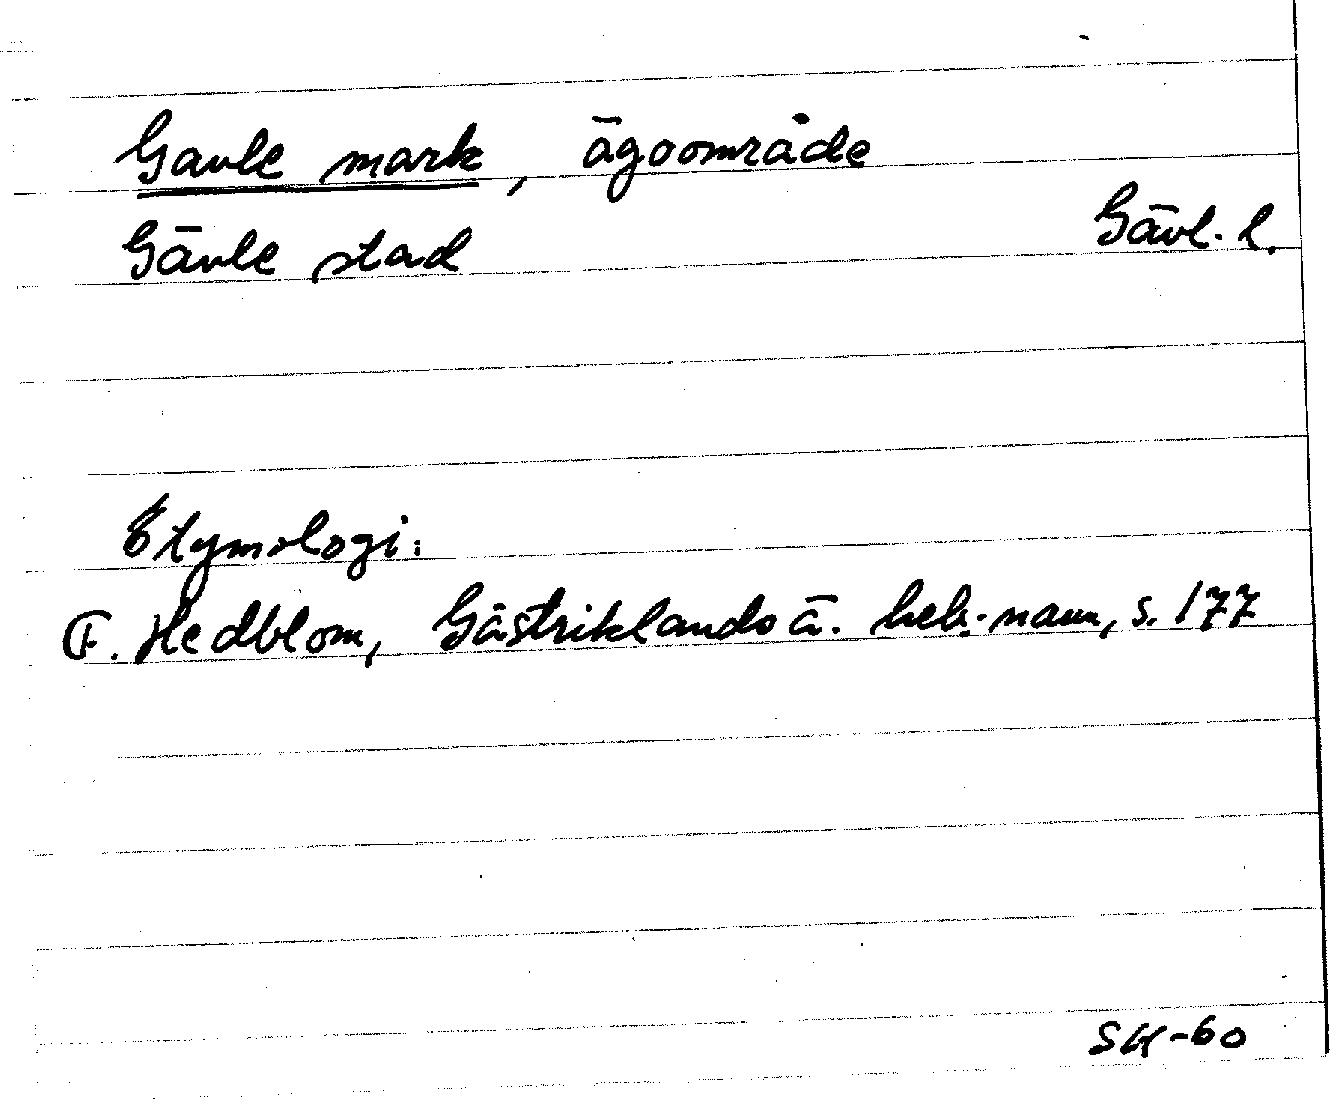 Gavle mark, ägoområde
Gävle stad Gävl. l.
Etymologi:
F. Hedblom, Gästriklands ä. beb.-namn, s. 177
SH-60